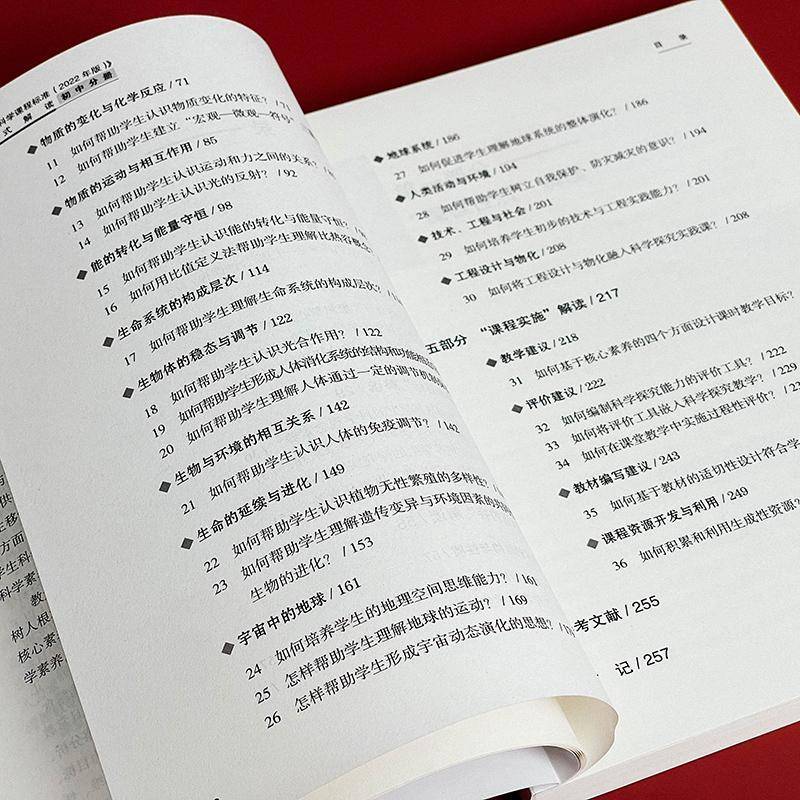 科学课程标准（2022年版）》
式解读 初中分册
◆物质的变化与化学反应 / 71
11 如何帮助学生认识物质变化的特征？ / 71
12 如何帮助学生建立“宏观—微观—符号”
◆物质的运动与相互作用 / 85
13 如何帮助学生认识运动和力之间的关系？
14 如何帮助学生认识光的反射？ / 92
◆能的转化与能量守恒 / 98
15 如何帮助学生认识能的转化与能量守恒？
16 如何用比值定义法帮助学生理解比热容概念
◆生命系统的构成层次 / 114
17 如何帮助学生理解生命系统的构成层次？
◆生物体的稳态与调节 / 122
18 如何帮助学生认识光合作用？ / 122
19 如何帮助学生形成人体消化系统的结构和功能
20 如何帮助学生理解人体通过一定的调节机制
◆生物与环境的相互关系 / 142
21 如何帮助学生认识人体的免疫调节？ / 142
◆生命的延续与进化 / 149
22 如何帮助学生认识植物无性繁殖的多样性？
23 如何帮助学生理解遗传变异与环境因素的
生物的进化？ / 153
◆宇宙中的地球 / 161
24 如何培养学生的地理空间思维能力？ / 161
25 怎样帮助学生理解地球的运动？ / 169
26 怎样帮助学生形成宇宙动态演化的思想？
目录
◆地球系统 / 186
27 如何促进学生理解地球系统的整体演化？ / 186
◆人类活动与环境 / 194
28 如何帮助学生树立自我保护、防灾减灾的意识？ / 194
◆技术、工程与社会 / 201
29 如何培养学生初步的技术与工程实践能力？ / 201
◆工程设计与物化 / 208
30 如何将工程设计与物化融入科学探究实践课？ / 208
五部分 “课程实施”解读 / 217
◆教学建议 / 218
31 如何基于核心素养的四个方面设计课时教学目标？
◆评价建议 / 222
32 如何编制科学探究能力的评价工具？ / 222
33 如何将评价工具嵌入科学探究教学？ / 229
34 如何在课堂教学中实施过程性评价？
◆教材编写建议 / 243
35 如何基于教材的适切性设计符合学
◆课程资源开发与利用 / 249
36 如何积累和利用生成性资源？
考文献 / 255
记 / 257